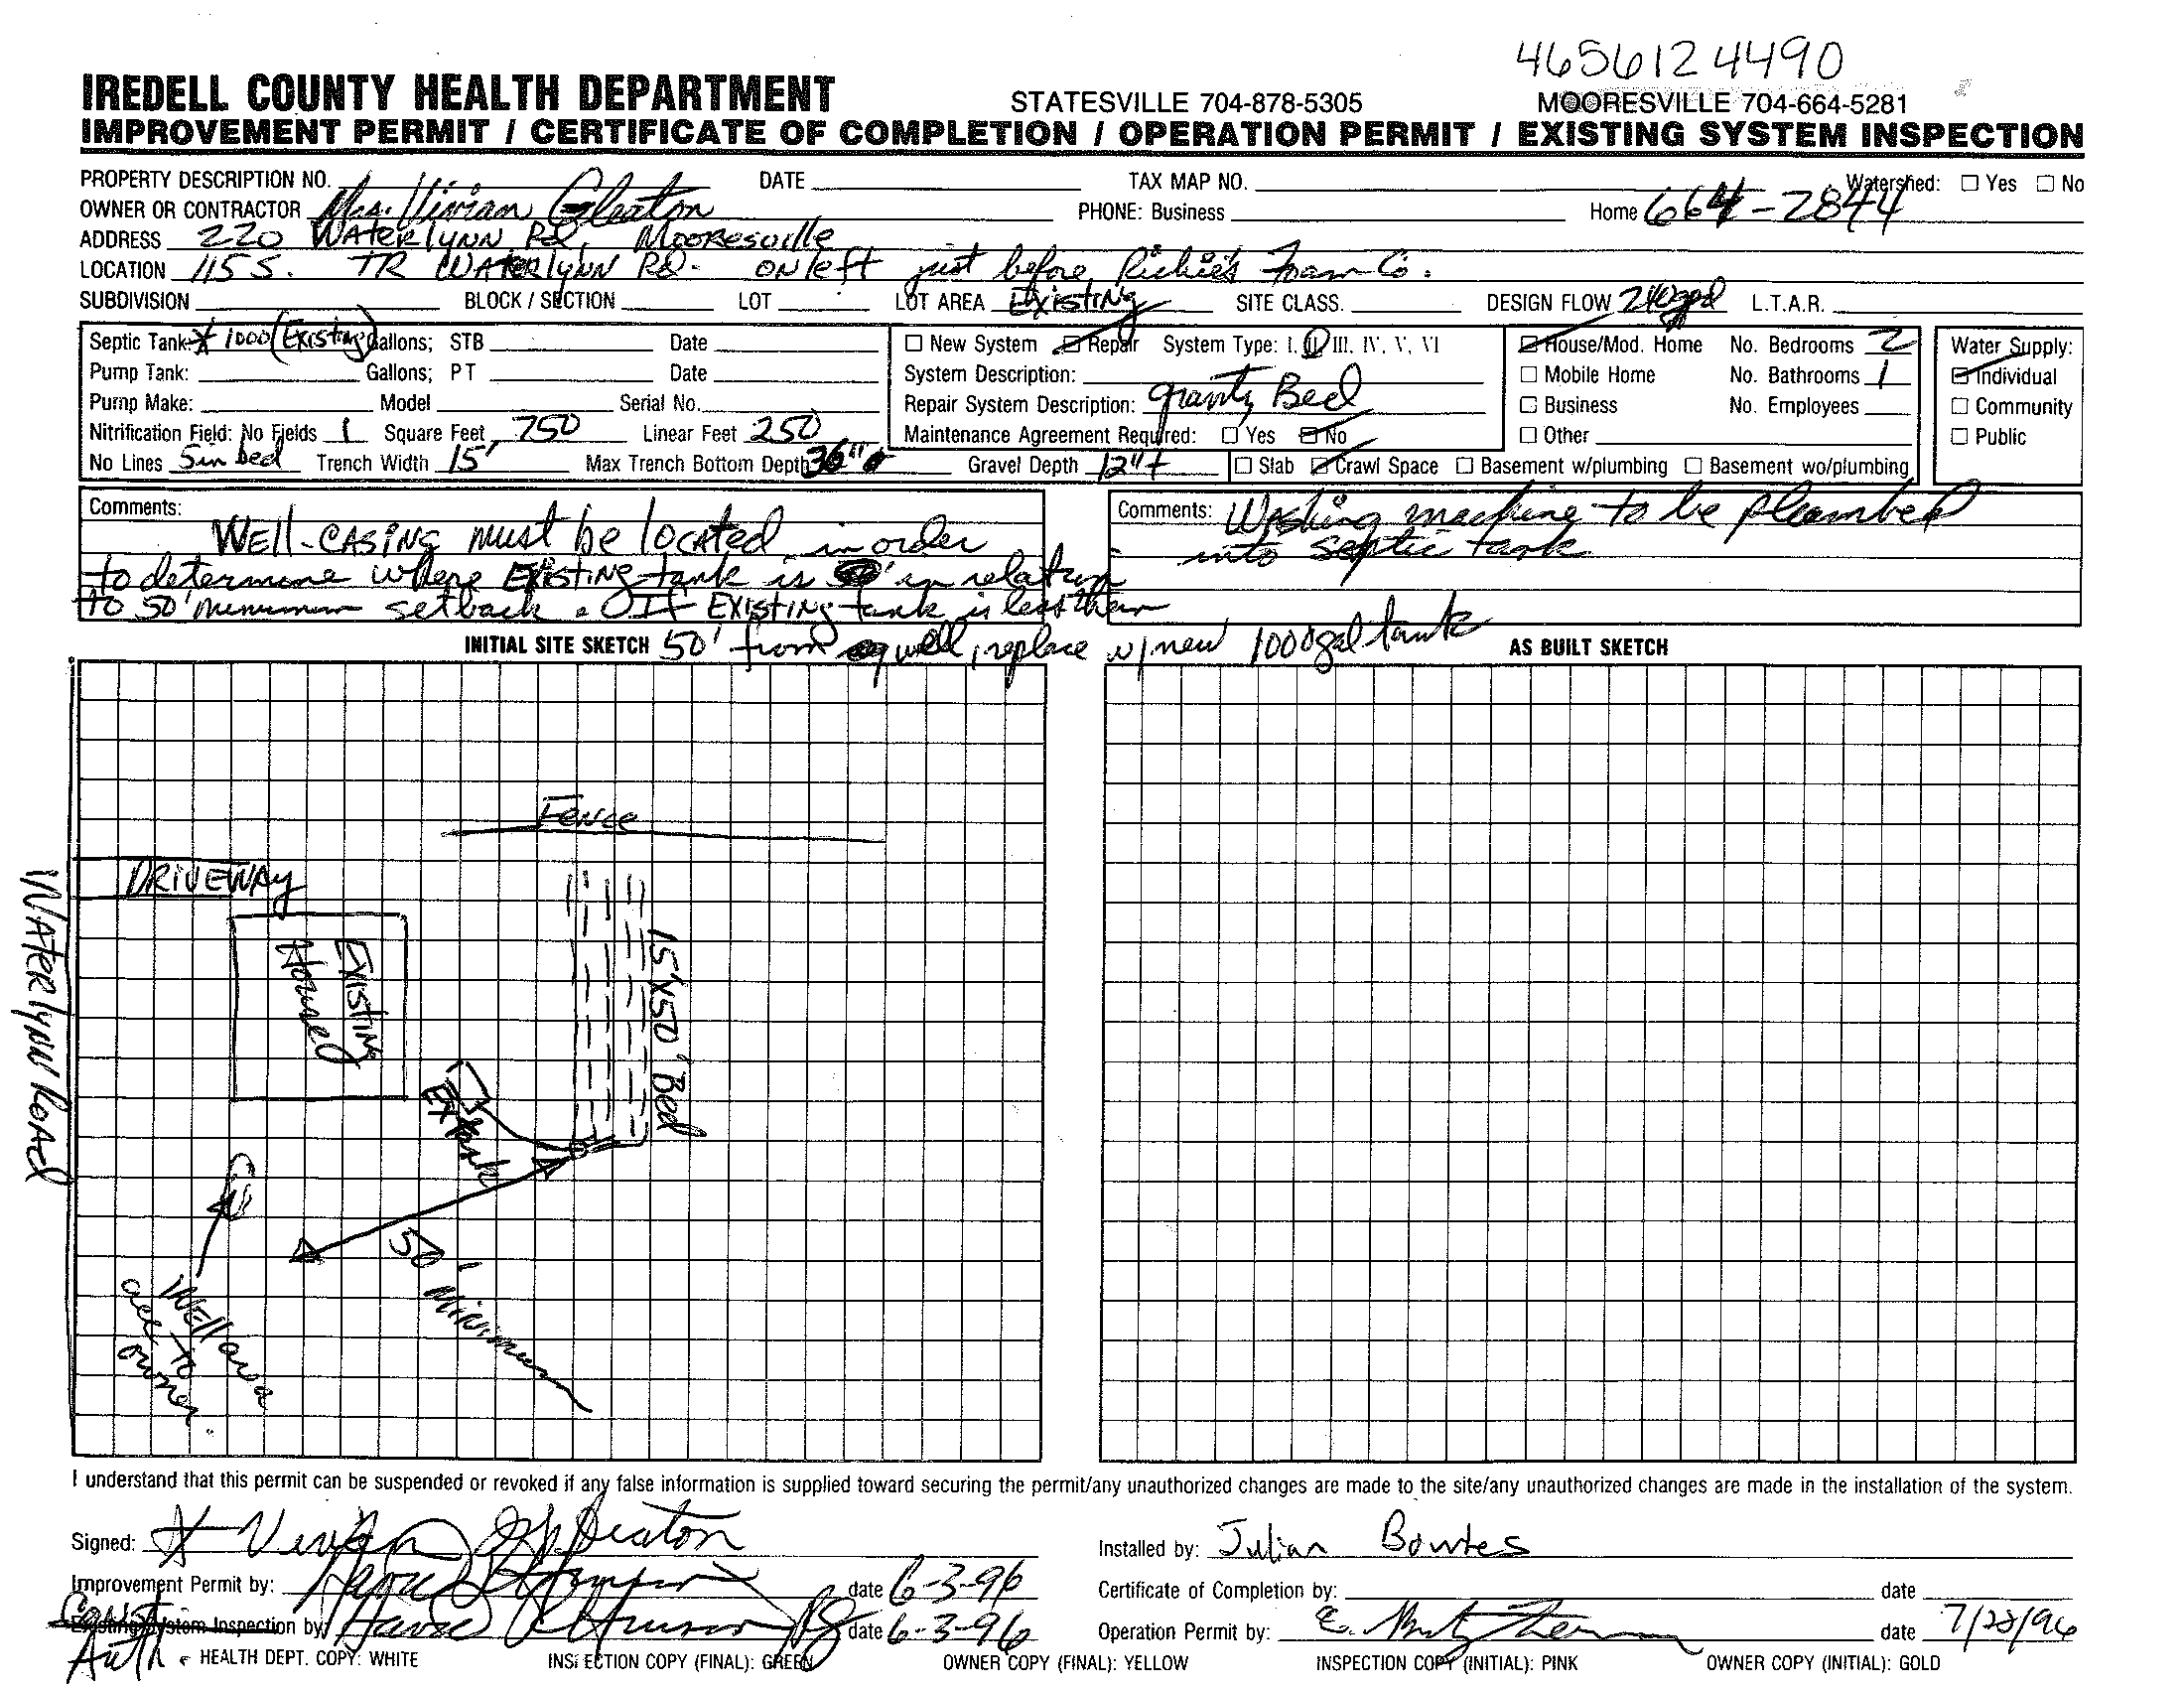 4656124490
IREDELL COUNTY HEALTH DEPARTMENT STATESVILLE 704-878-5305 MOORESVILLE 704-664-5281
IMPROVEMENT PERMIT / CERTIFICATE OF COMPLETION / OPERATION PERMIT / EXISTING SYSTEM INSPECTION
PROPERTY DESCRIPTION NO. DATE TAX MAP NO. Watershed: ☐ Yes ☐ No
OWNER OR CONTRACTOR Mrs. Vivian Gleaton PHONE: Business Home 664-2844
ADDRESS 220 WATERlyNN Rd, MOORESville
LOCATION 115 S. TR WATERlyNN Rd. ON left just before Richie's Foam Co.
SUBDIVISION BLOCK / SECTION LOT LOT AREA EXISTING SITE CLASS. DESIGN FLOW 240gpd L.T.A.R.
Septic Tank: * 1000 (EXISTING) Gallons; STB Date ☐ New System ☑ Repair System Type: I, II, III, IV, V, VI ☑ House/Mod. Home No. Bedrooms 2 Water Supply:
Pump Tank: Gallons; PT Date System Description: ☐ Mobile Home No. Bathrooms 1 ☑ Individual
Pump Make: Model Serial No. Repair System Description: gravity Bed ☐ Business No. Employees ☐ Community
Nitrification Field: No Fields 1 Square Feet 750 Linear Feet 250 Maintenance Agreement Required: ☐ Yes ☑ No ☐ Other ☐ Public
No Lines 5 in bed Trench Width 15' Max Trench Bottom Depth 36" Gravel Depth 12"+ ☐ Slab ☑ Crawl Space ☐ Basement w/plumbing ☐ Basement wo/plumbing
Comments: WEll-CASING must be located in order
to determine where EXISTING tank is in relation
to 50' minimum setback. If EXISTING tank is less than
50' from well, replace w/ new 1000gal tank
Comments: Washing machine to be plumbed
into septic tank
INITIAL SITE SKETCH AS BUILT SKETCH
Fence
DRIVEWAy
WATERlyNN ROAd
EXISTING
House
15'X50' Bed
Ex tank
50' Minimum
Well area
acc to
owner.
I understand that this permit can be suspended or revoked if any false information is supplied toward securing the permit/any unauthorized changes are made to the site/any unauthorized changes are made in the installation of the system.
Signed: X Vivian Gleaton Installed by: Julian Bowles
Improvement Permit by: date 6-3-96 Certificate of Completion by: date
Const Existing System Inspection by: date 6-3-96 Operation Permit by: date 7/23/96
Auth. HEALTH DEPT. COPY: WHITE INSPECTION COPY (FINAL): GREEN OWNER COPY (FINAL): YELLOW INSPECTION COPY (INITIAL): PINK OWNER COPY (INITIAL): GOLD